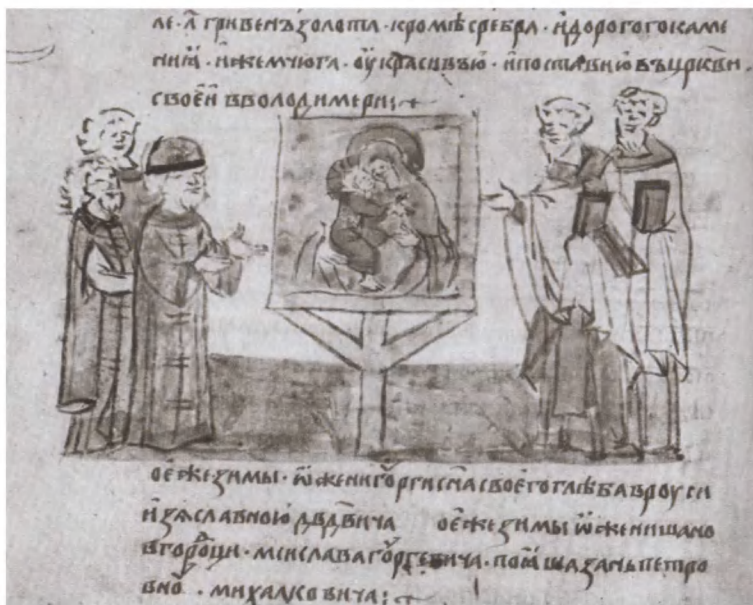 ле · л҃ гривенъ золота · кромѣ сребра · и дорогого каме
нииѧ · и жемчюга · оукрасивъ ю · и поставию въ црк҃ви
своеи в володимери :
тоеже зимы · ѡжени гюрги сн҃а своего глѣба в роуси
изѧславною двд҃вича тоеже зимы ѡжени
мьстислава гюргевича · петро
вною · михалковича :